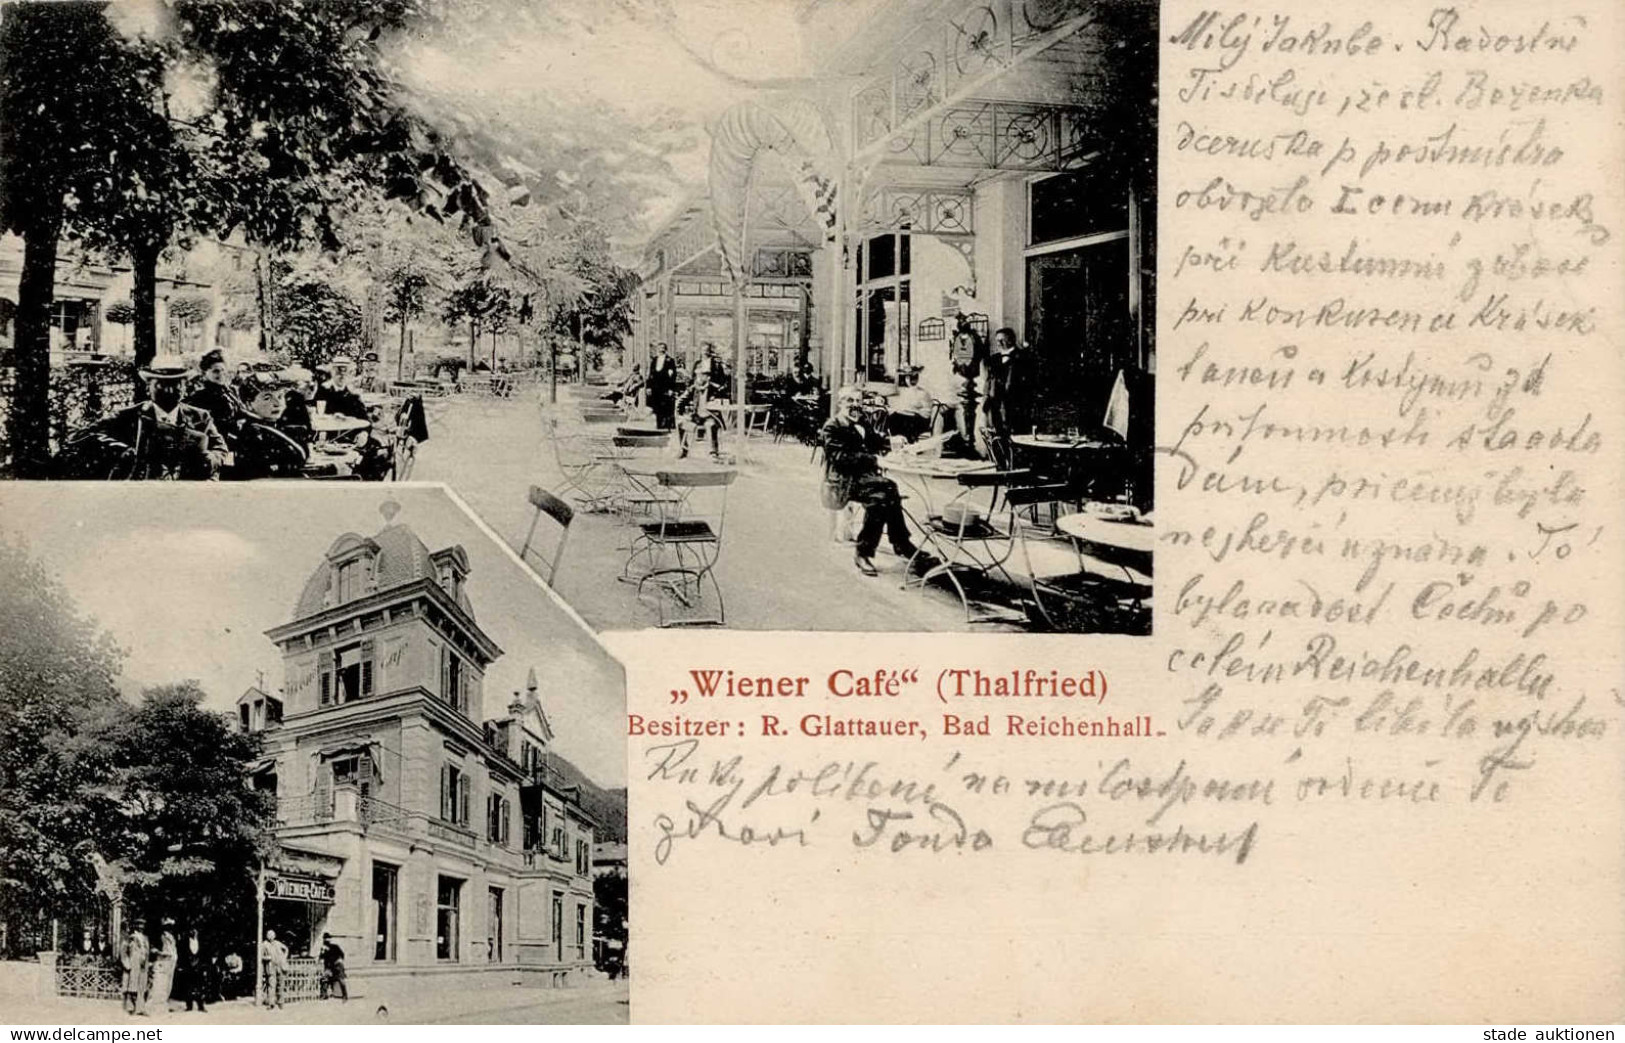 Milý Jakube. Radostně
Ti sděluji, že sl. Boženka
dceruška p poštmistra
obdržela I cenu krásek
při
při konkurenci Krásek
tanců a kostýmů, zd
přítomnosti
Dám, pricemž byla
nejhezčí uznána. Tó
byla radost Čechů po
celém Reichenhallu.
Jak se Ti líbila
„Wiener Café“ (Thalfried)
Besitzer: R. Glattauer, Bad Reichenhall.
Ruky políbení na milostpaní srdečně Te
zdraví Tonda
WIENER-CAFÉ
www.delcampe.net
stade auktionen